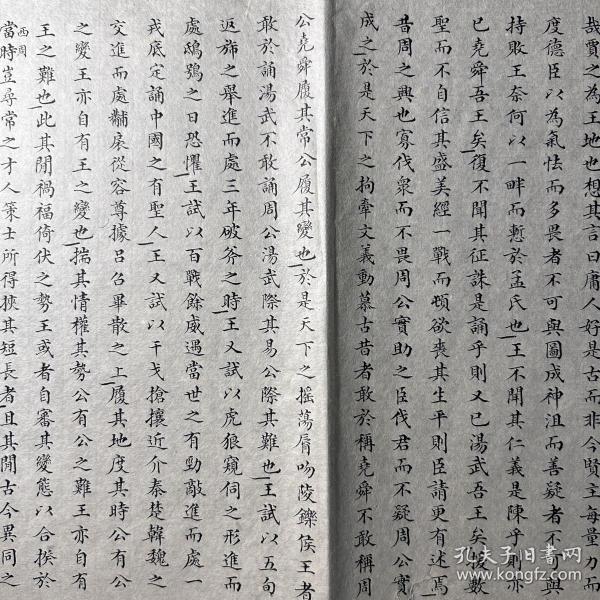 哉賈之為王地也想其言曰庸人好是古而非今賢主每量力而
度德臣以為氣怯而多畏者不可與圖成神沮而善疑者不
與
持敗王奈何以一畔而慙於孟氏也王不聞其仁義是陳乎則亦
已堯舜吾王矣復不聞其征誅是誦乎則又已湯武吾王矣後數
聖而不自信其盛美經一戰而頓欲喪其生平則臣請更有述焉
昔周之興也寡伐衆而不畏周公實助之臣伐君而不疑周公實
成之於是天下之拘牽文義動慕古昔者敢於稱堯舜不敢稱周
公堯舜履其常公履其變也於是天下之搖蕩脣吻陵鑠侯王者
敢於誦湯武不敢誦周公湯武際其易公際其難也王試以五旬
返旆之舉進而處三年破斧之時王又試以虎狼窺伺之形進而
處鴟鴞之日恐懼王試以百戰餘威遇當世之有勁敵進而處一
戎底定誦中國之有聖人王又試以干戈搶攘近介秦楚韓魏之
交進而處黼扆從容尊據呂召畢散之上履其地度其時公有公
之變王亦自有王之變也揣其情權其勢公有公之難王亦自有
王之難也此其閒禍福倚伏之勢王或者自審其變態以合揆於
西周
當時豈尋常之才人策士所得挾其短長者且其閒古今異同之
孔夫子旧书网
www.kongfz.com